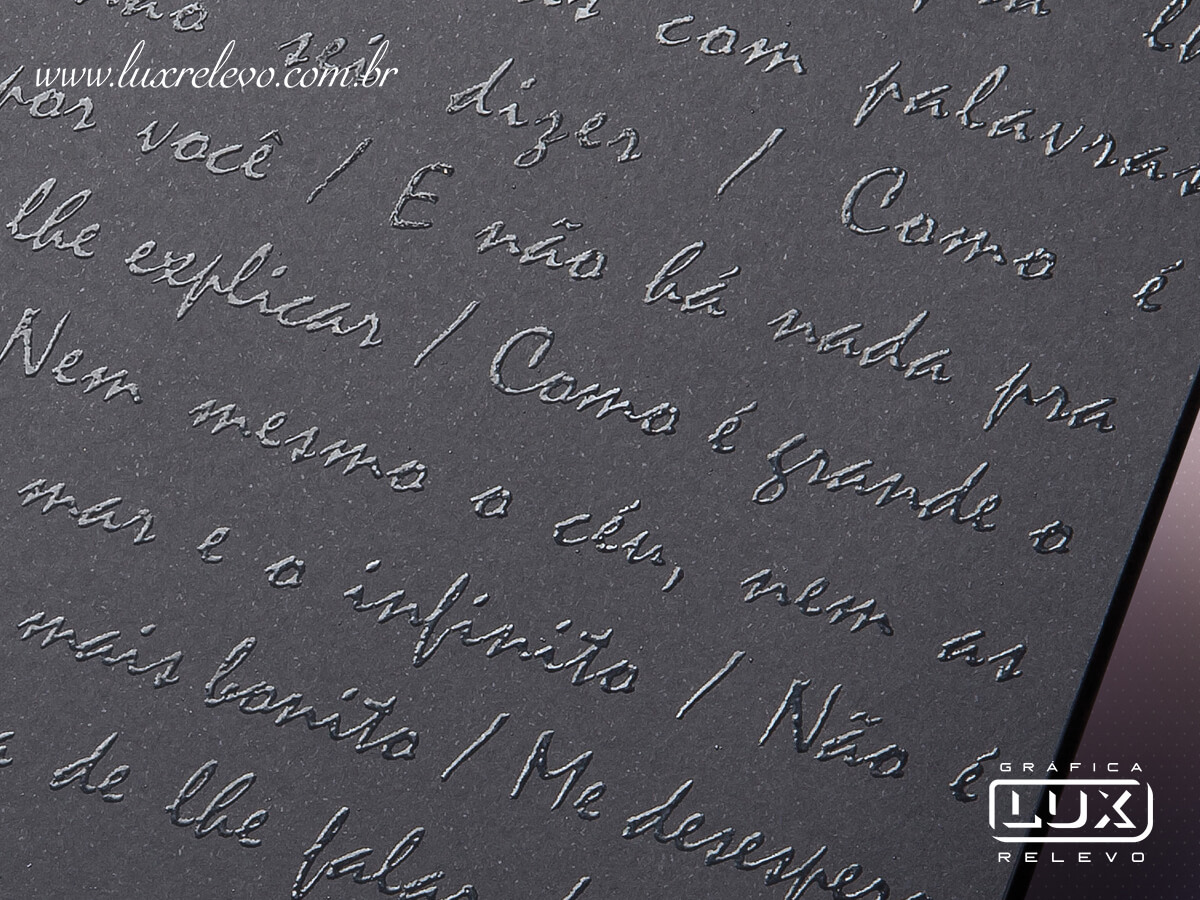 www.luxrelevo.com.br
com palavras
sei dizer / Como é
por você / E não há nada pra
lhe explicar / Como é grande o
Nem mesmo o céu, nem as
mar e o infinito / Não é
mais bonito / Me desesper
a de lhe falar /
GRÁFICA
LUX
RELEVO